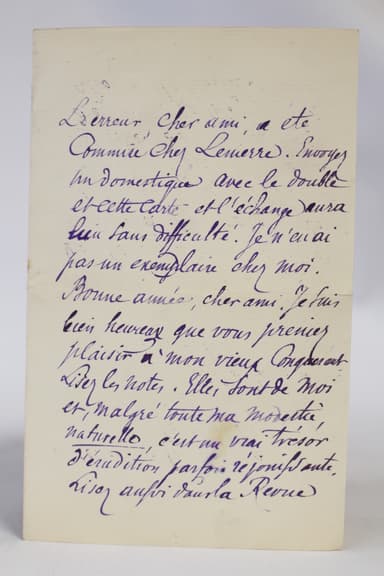 L'erreur, cher ami, a été
Commise chez Lemerre. Envoyez
un domestique avec le double
et cette carte et l'échange aura
lieu sans difficulté. Je n'en ai
pas un exemplaire chez moi.
Bonne année, cher ami. Je suis
bien heureux que vous preniez
plaisir à mon vieux Conquérant
Lisez les notes. Elles sont de moi
et, malgré toute ma modestie
naturelle, c'est un vrai trésor
d'érudition parfois réjouissante.
Lisez aussi dans la Revue